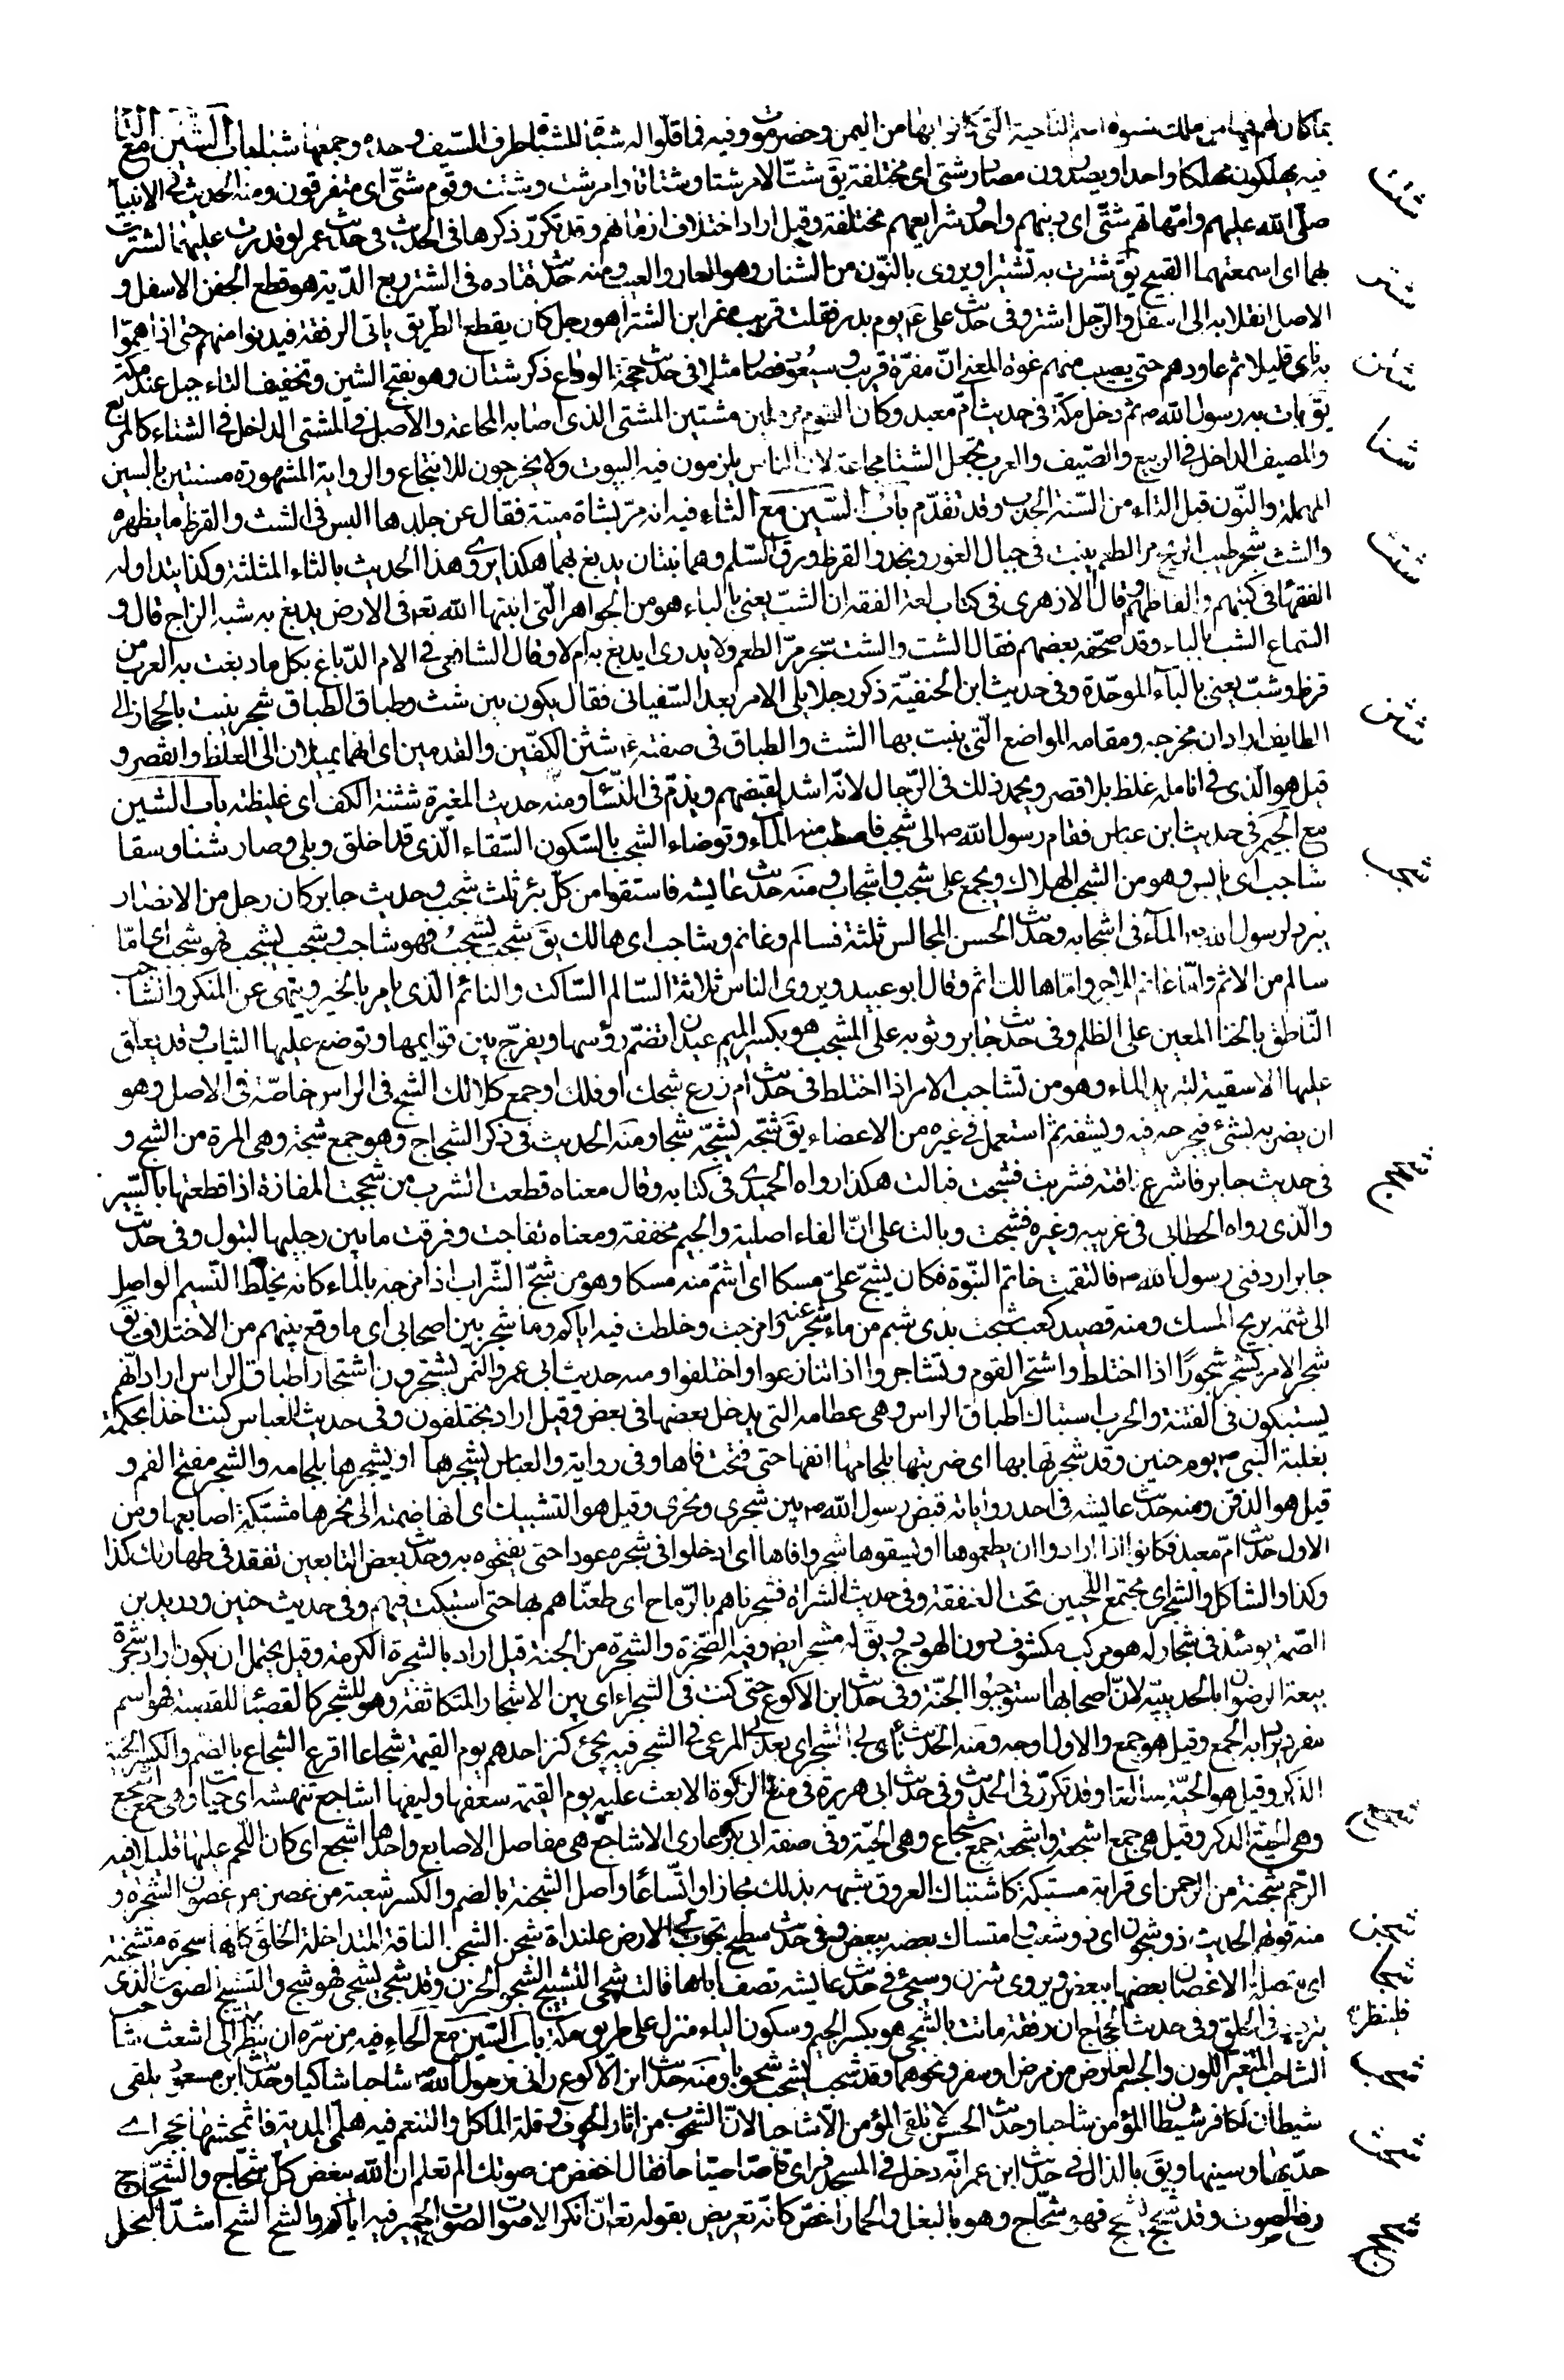 بما كان لهم فيها من ملك نسبوه اسم الناحية التى كانوا بها من اليمن وحضرموت وفيه فما قلوا له شباة الشباة طرف السيف وحده وجمعها شبا باب الشين مع التا
شتت
فيه يهلكون مهلكا واحدا ويصدرون مصادر شتى اى مختلفة يق شت الامر شتا وشتاتا وامر شت وشتت وقوم شتى اى متفرقون ومنه الحديث فى الانبيا
صلى الله عليهم وامهاتهم شتى اى دينهم واحد وشرايعهم مختلفة وقيل اراد اختلاف ازمانهم وقد تكرر ذكرها فى الحديث فى حديث عمر لو قدرت عليهما لشترت
شتر
بهما اى اسمعتهما القبيح يق شترت به تشتيرا ويروى بالنون من الشنار وهو العار والعيب ومنه حديث قتاده فى الشتر ربع الدية هو قطع الجفن الاسفل و
الاصل انقلابه الى اسفل والرجل اشتر وفى حديث على ع يوم بدر فقلت قريب مفر ابن الشترا هو رجل كان يقطع الطريق ياتى الرفقة فيدنوا منهم حتى اذا هموا
شتن
به ناى قليلا ثم عاودهم حتى يصيب منهم غرة المعنى ان مفره قريب وسيعود فصار مثلا فى حديث حجة الوداع ذكر شتان وهو بفتح الشين وتخفيف التاء جبل عند مكة
شتا
يق بات به رسول الله ص ثم دخل مكة فى حديث ام معبد وكان القوم مرملين مشتين المشتى الذى اصابه المجاعة والاصل فى المشتى الداخل فى الشتاء كالمربع
والمصيف الداخل فى الربيع والصيف والعرب تجعل الشتا مجاعة لان الناس يلزمون فيه البيوت ولا يخرجون للانتجاع والرواية المشهورة مسنتين بالسين
شثث
المهملة والنون قبل التاء من السنة الجدب وقد تقدم باب الشين مع الثاء فيه انه مر بشاة ميتة فقال عن جلدها اليس فى الشث والقرظ ما يطهره
والشث شجر طيب الريح مر الطعم ينبت فى جبال الغور ونجد والقرظ ورق السلم وهما نبتان يدبغ بهما هكذا يروى هذا الحديث بالثاء المثلثة وكذا يتداوله
الفقها فى كتبهم والفاظهم وقال الازهرى فى كتاب لغة الفقه ان الشب يعنى بالباء هو من الجواهر التى انبتها الله تع فى الارض يدبغ به شبه الزاج قال و
السماع الشب بالباء وقد صحفه بعضهم فقال الشث والشث شجر مر الطعم ولا يدرى ايدبغ به ام لا وقال الشافعى فى الام الدباغ بكل ما دبغت به العرب من
قرظ وشب يعنى بالباء الموحدة وفى حديث ابن الحنفية ذكر رجلا يلى الامر بعد السفيانى فقال يكون بين شث وطباق الطباق شجر ينبت بالحجاز الى
شثن
الطايف اراد ان مخرجه ومقامه المواضع التى ينبت بها الشث والطباق فى صفته ع شثن الكفين والقدمين اى انهما يميلان الى الغلظ والقصر و
قيل هو الذى فى انامله غلظ بلا قصر ويحمد ذلك فى الرجال لانه اشد لقبضهم ويذم فى النسآ ومنه حديث المغيرة شثنة الكف اى غليظته باب الشين
شجب
مع الجيم فى حديث ابن عباس فقام رسول الله ص الى شجب فاصطب منه المآء وتوضاء الشجب بالسكون السقاء الذى قد اخلق وبلى وصار شنا وسقا
شاجب اى يابس وهو من الشجب الهلاك ويجمع على شجب واشجاب ومنه حديث عايشه فاستقوا من كل بئر ثلث شجب وحديث جابر كان رجل من الانصار
يبرد لرسول الله ص المآء فى اشجابه وحديث الحسن المجالس ثلثة فسالم وغانم وشاجب اى هالك يق شجب يشجب فهو شاجب وشجب يشجب فهو شجب اى اما
سالم من الاثم واما غانم للاجر واما هالك اثم وقال ابو عبيد ويروى الناس ثلاثة السالم الساكت والغانم الذى يامر بالخير وينهى عن المنكر والشاجب
الناطق بالخنا المعين على الظلم وفى حديث جابر وثوبه على المشجب هو بكسر الميم عيدان تضم رؤسها ويفرج بين قوايمها وتوضع عليها الثياب وقد يعلق
عليها الاسقية لتبريد الماء وهو من تشاجب الامر اذا اختلط فى حديث ام زرع شجك او فلك او جمع كلا لك الشج فى الراس خاصة فى الاصل وهو
شجج
ان يضربه بشئ فيجرحه فيه ويشقه ثم استعمل فى غيره من الاعضاء يق شجه يشجه شجا ومنه الحديث فى ذكر الشجاج وهو جمع شجة وهى المرة من الشج و
فى حديث جابر فاشرع ناقته فشربت فشجت فبالت هكذا رواه الحميدى فى كتابه وقال معناه قطعت الشرب من شججت المفازة اذا قطعتها بالسير
والذى رواه الخطابى فى غريبه وغيره فشجت وبالت على ان الفاء اصلية والجيم مخففة ومعناه تفاجت وفرقت ما بين رجليها لتبول وفى حديث
جابر اردفنى رسول الله ص فالتقمت خاتم النبوة فكان يشج على مسكا اى اشم منه مسكا وهو من شج الشراب اذا مزجه بالماء كانه يخلط النسيم الواصل
الى شمه بريح المسك ومنه قصيد كعب شجت بذى شبم من ماء محنية اى مزجت وخلطت فيه اياكم وما شجر بين اصحابى اى ما وقع بينهم من الاختلاف يق
شجر الامر يشجر شجورا اذا اختلط واشتجر القوم وتشاجروا اذا تنازعوا واختلفوا ومنه حديث ابى عمرو النخعى يشتجرون اشتجار اطباق الراس اراد انهم
يشتبكون فى الفتنة والحرب اشتباك اطباق الراس وهى عظامه التى يدخل بعضها فى بعض وقيل اراد يختلفون وفى حديث العباس كنت اخذا بحكمة
بغلة النبى ص يوم حنين وقد شجرتها بها اى ضربتها بلجامها اكفها حتى فتحت فاها وفى رواية والعباس يشجرها او يشجرها بلجامه والشجر مفتح الفم و
قيل هو الذقن ومنه حديث عايشه فى احد رواياته قبض رسول الله ص بين شجرى ونحرى وقيل هو التشبيك اى انها ضمته الى نحرها مشبكة اصابعها ومن
الاول حديث ام معبد فكانوا اذا ارادوا ان يطعموها او يسقوها شجروا فاها اى ادخلوا فى شجره عودا حتى يفتحوه به وحديث بعض التابعين تفقد فى طهارتك كذا
وكذا والشاكل والشجر اى مجتمع اللحيين تحت العنفقة وفى حديث الشراة فشجرناهم بالرماح اى طعناهم بها حتى اشتبكت فيهم وفى حديث حنين ودريد بن
الصمة يومئذ فى شجار له هو مركب مكشوف دون الهودج ويق له مشجر ايض وفيه الصخرة والشجرة من الجنة قيل اراد بالشجرة الكرمة وقيل يحتمل ان يكون اراد شجرة
بيعة الرضوان بالحديبيه لان اصحابها استوجبوا الجنة وفى حديث ابن الاكوع حتى كنت فى الشجراء اى بين الاشجار المتكاثفة وهو للشجر كالقصباء للقصبة فهو اسم
مفرد يراد به الجمع وقيل هو جمع والاول اوجه ومنه الحديث ناى بى الشجر اى بعد بى المرعى فى الشجر فيه يجئ كنز احدهم يوم القيمة شجاعا اقرع الشجاع بالضم والكسر الحية
الذكر وقيل هو الحية مطلقا وقد تكرر فى الحديث وفى حديث ابى هريرة فى منع الزكوة الا بعث عليه يوم القيمة سعفها وليفها اشاجع تنهشه اى حيات وهى جمع اشجع
شجع
وهى الحية الذكر وقيل هى جمع اشجعة واشجعة جمع شجاع وهى الحية وفى صفة ابى بكر عارى الاشاجع هى مفاصل الاصابع واحدها اشجع اى كان اللحم عليها قليلا فيه
شجن
الرحم شجنة من الرحمن اى قرابة مشتبكة كاشتباك العروق شبهه بذلك مجازا واتساعا واصل الشجنة بالضم والكسر شعبة من غصن من غصون الشجرة و
منه قولهم الحديث ذو شجون اى ذو شعب وامتساك بعضه ببعض وفى حديث سطيح تجوب بى الارض علنداة شجن الشجن الناقة المتداخلة الخلق كانها شجرة متشجنة
شجا
اى متصلة الاغصان بعضها ببعض ويروى شزن وسيجئ فى حديث عايشه تصف اباها قالت شجى النشيج الشجو الحزن وقد شجى يشجى فهو شج والنشيج الصوت الذى
فلينظر
يتردد فى الحلق وفى حديث الحجاج ان رفقة ماتت بالشجى هو بكسر الجيم وسكون الياء منزل على طريق مكة باب الشين مع الحاء فيه من سره ان ينظر الى اشعث شاحب
شحب
الشاحب المتغير اللون والجسم لعارض من مرض او سفر ونحوهما وقد شحب يشحب شحوبا ومنه حديث ابن الاكوع رانى رسول الله ص شاحبا شاكيا وحديث ابن مسعود يلقى
شيطان الكافر شيطان المؤمن شاحبا وحديث الحسن لا يلقى المؤمن الا شاحبا لان الشحوب من اثار الخوف وقلة الماكل والتنعم فيه هلمى المدية فاشحثيها بحجر اى
شحث
حديها وسنيها ويق بالذال فى حديث ابن عمر انه دخل فى المسجد فراى قاصا صياحا فقال اخفض من صوتك الم تعلم ان الله يبغض كل شحاج والشحاج
شحح
رفع الصوت وقد شحج يشحج فهو شحاج وهو بالبغل والحمار اخص كانه تعريض بقوله تع ان انكر الاصوات لصوت الحمير فيه اياكم والشح الشح اشد البخل